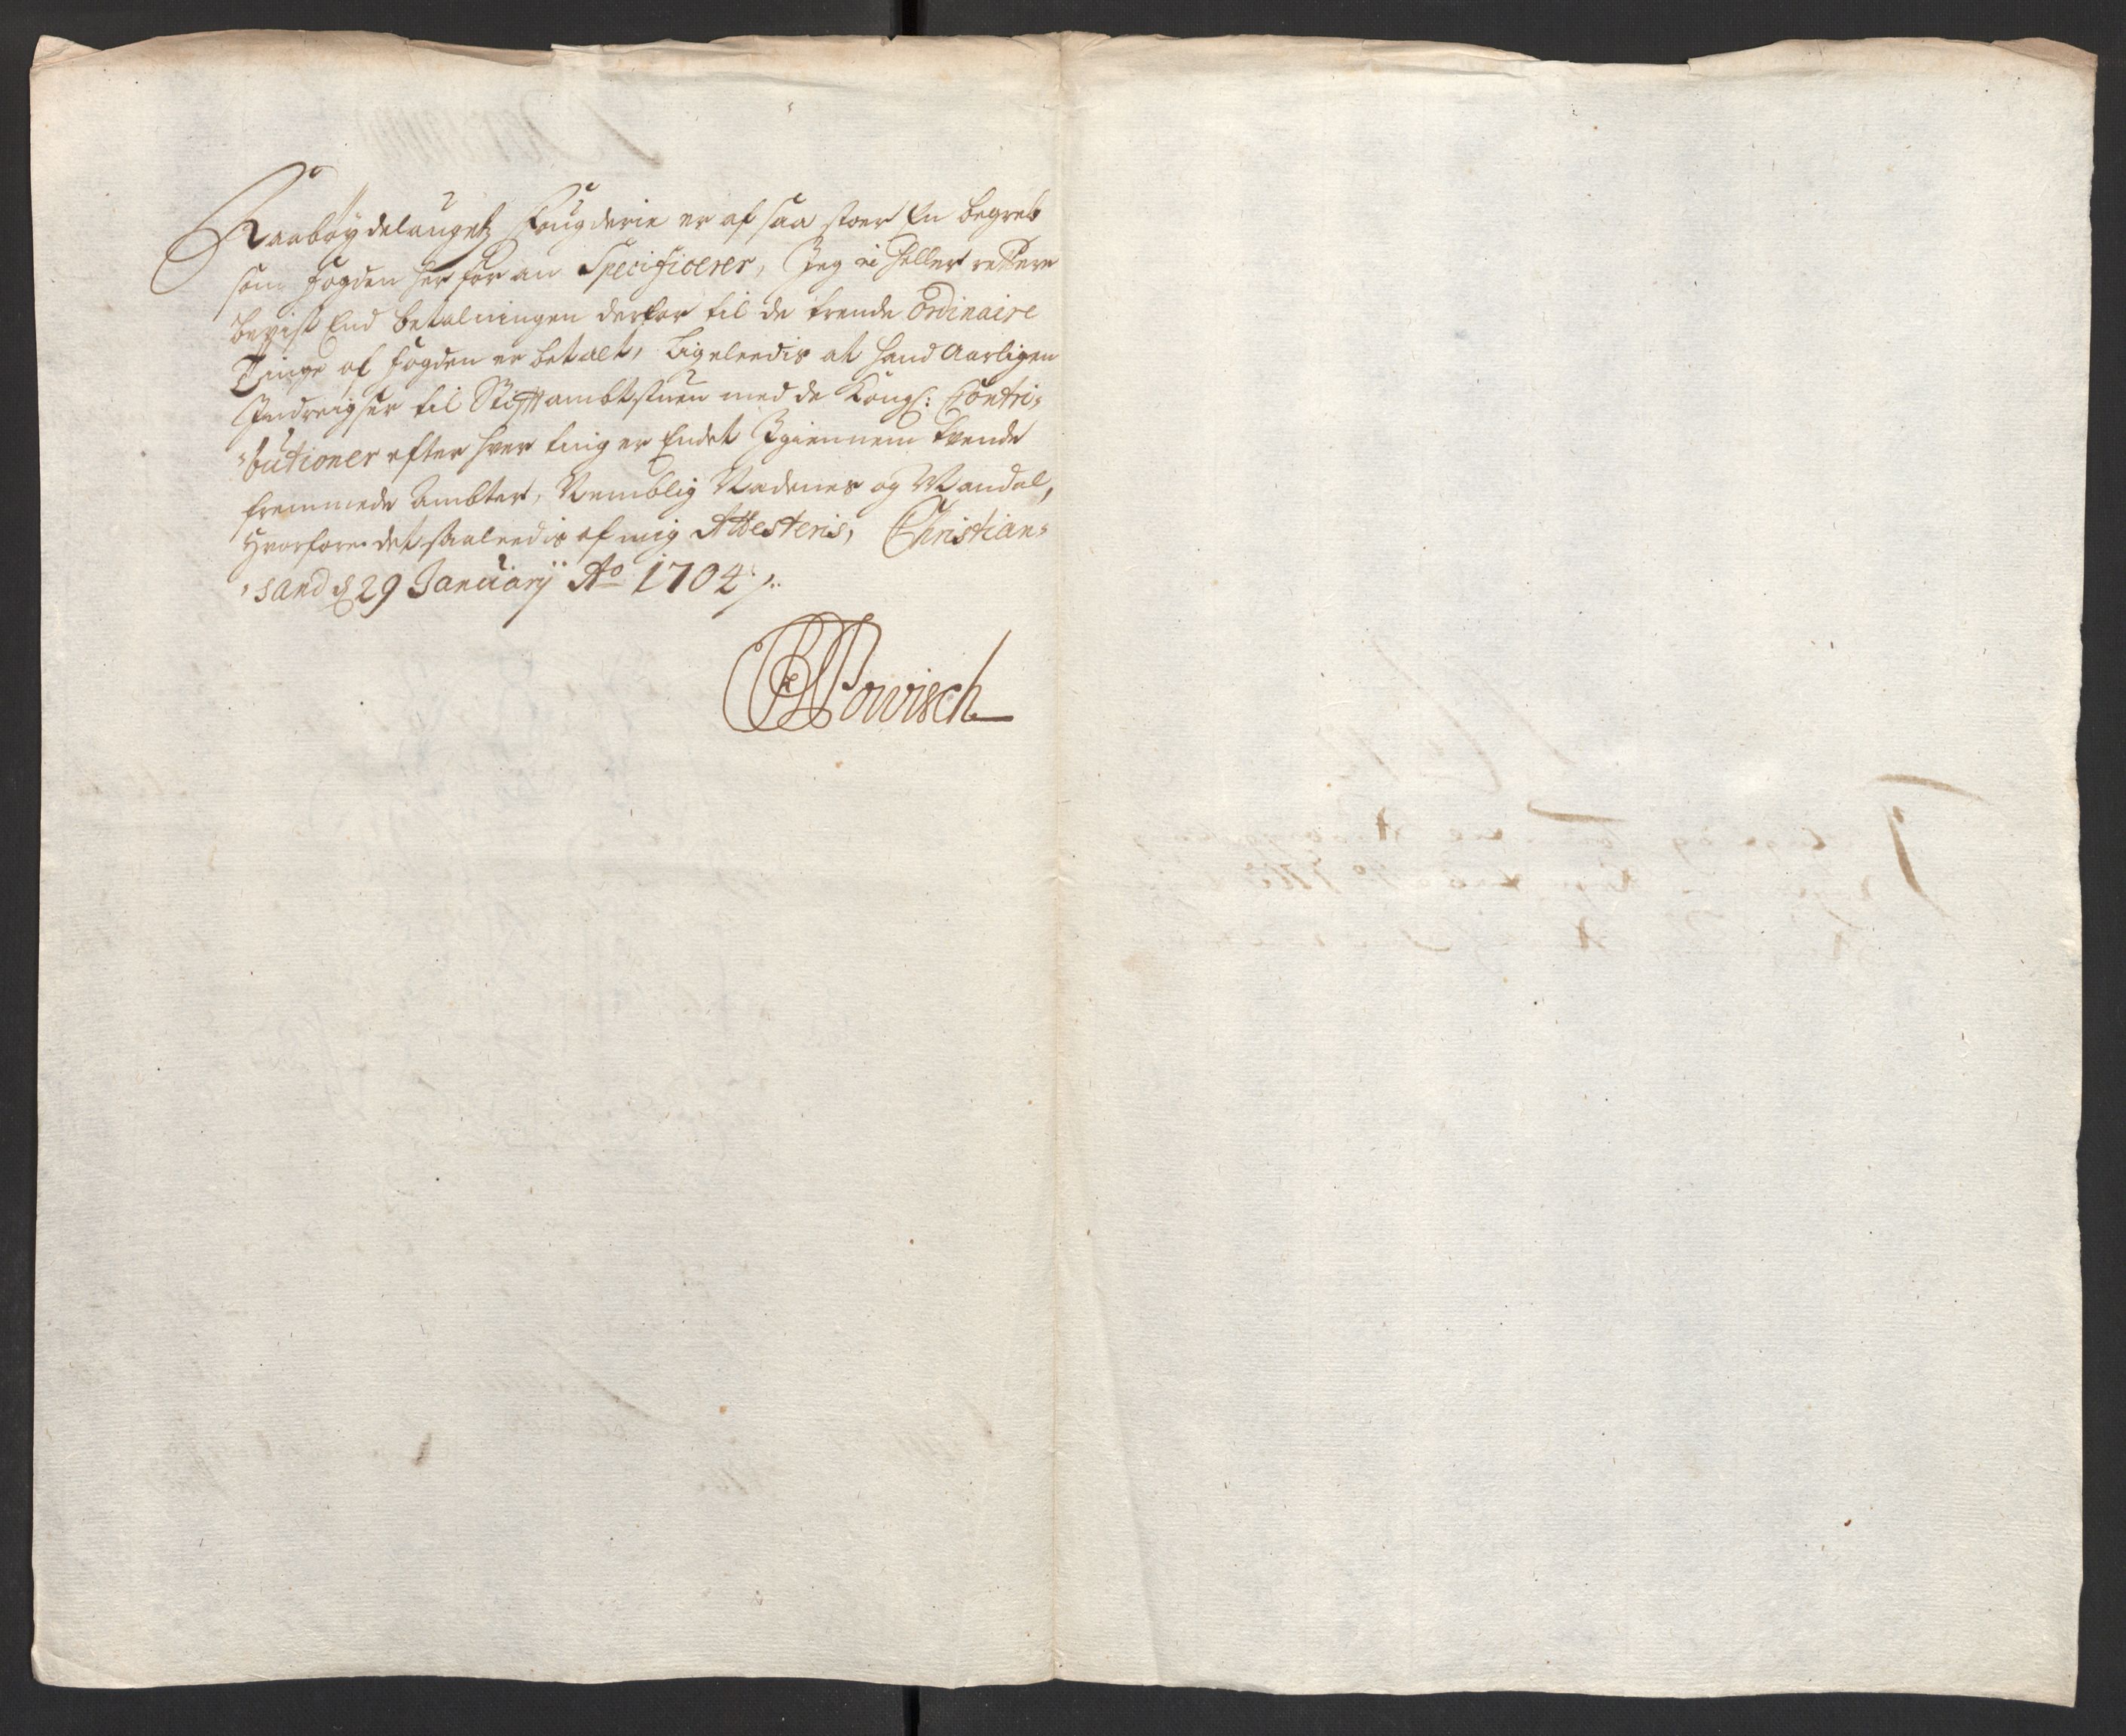 Raabøydelaugetz Fougderie er af saa stoer En begreb
som fogden her for an Specificerer, Jeg ei heller rettere
bevist End betalningen derfor til de trende ordinaire
Tinge af fogden er betalt, Ligeleedis at hand Aarligen
Indreigser til Stifftambtstuen med de Kongl: Contri=
=butioner efter hver ting er Endet Igiennem tvende
fremmede Ambter, Nemblig Nedenes og Mandal,
Hvorfore det saaleedis af mig Attesteris, Christian=
=sand d 29 January Ao 1704 /.
Powisch